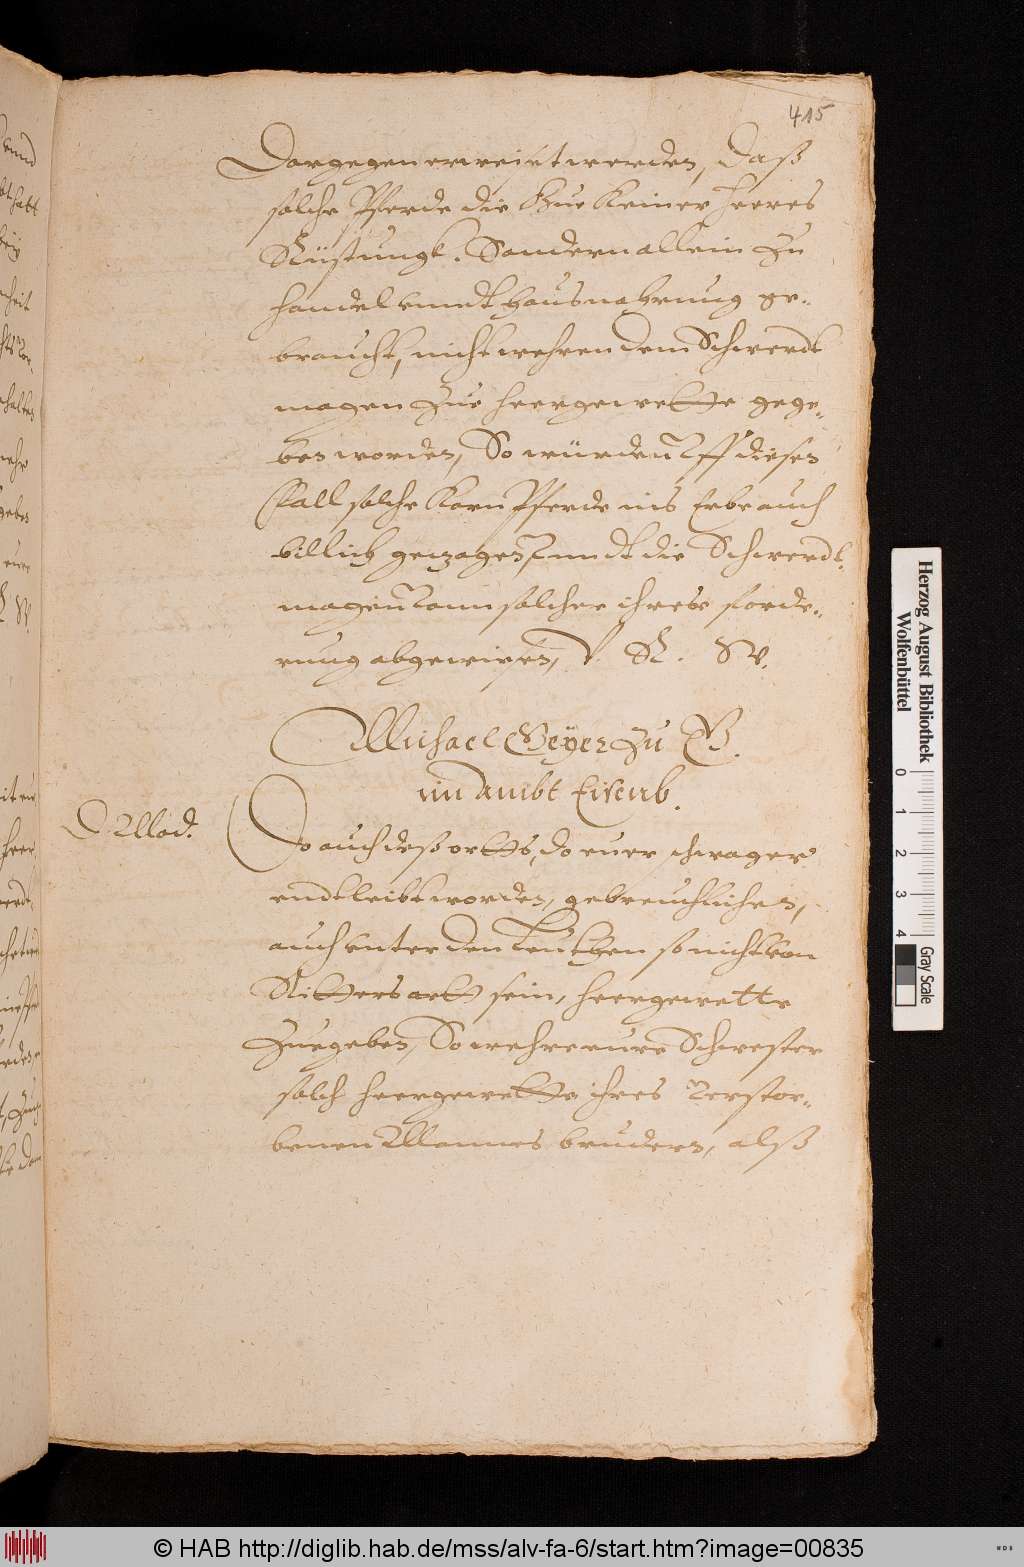 415
Dargegen erweiset werden, daß
solche Pferde die Zue keiner Heeres
Rüstungk. Sondern allein Zu
handel vnndt haußnahrung ge-
braucht, nicht wehren dem Schwerdt
magen Zue Heergewette gege-
ben worden, So würden vff diesen
Fall solche Korn Pferde ins Erbe auch
billich gezogen, vnndt die Schwerdt-
magen dann solcher ihrer forde-
rung abgewiesen, V. R. W.
Michael Geyer Zu B.
im Ambt Eisenb.
Mod.
Do auch deß orttes, do euer schwager
endtleibt worden, gebreuchlichen,
auch vnter den Leutthen so nicht von
Ritters artt sein, Heergewette
Zuegeben, So wehre eure Schwester
solch Heergewette ihres verstor-
benen Mannes bruders, alß
Herzog August Bibliothek
Wolfenbüttel
0 1 2 3 4
Gray Scale
© HAB http://diglib.hab.de/mss/alv-fa-6/start.htm?image=00835